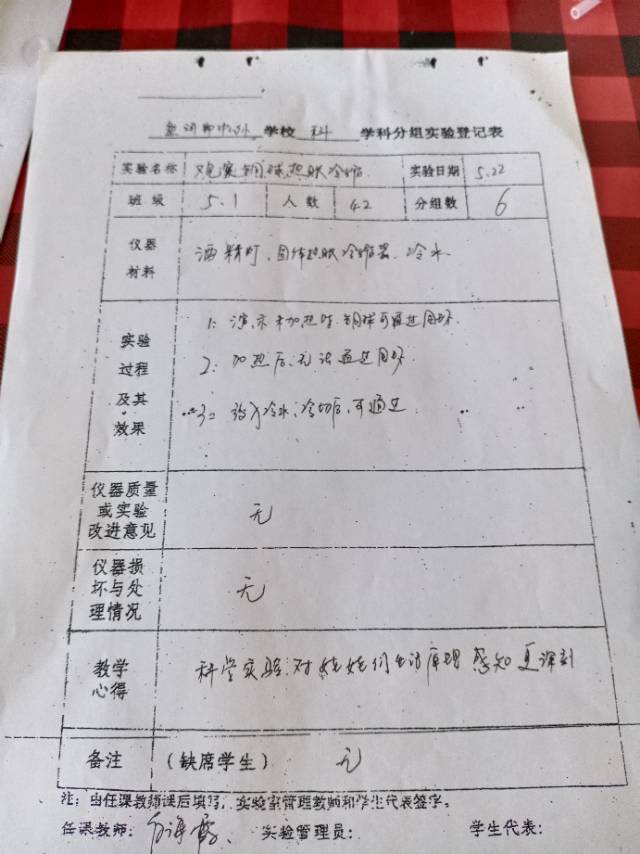 学校 科 学科分组实验登记表
实验名称 观察铜球热胀冷缩 实验日期 5.22
班级 5.1 人数 42 分组数 6
仪器材料 酒精灯、固体热胀冷缩器、冷水
实验过程及其效果
1: 演示未加热时 铜球可通过圆环.
2: 加热后,无法通过圆环
3: 放入冷水,冷切后,可通过
仪器质量或实验改进意见 无
仪器损坏与处理情况 无
教学心得 科学实验,对娃娃们生活原理感知更深刻
备注 (缺席学生) 无
注:由任课教师课后填写,实验室管理教师和学生代表签字。
任课教师: 实验管理员: 学生代表: